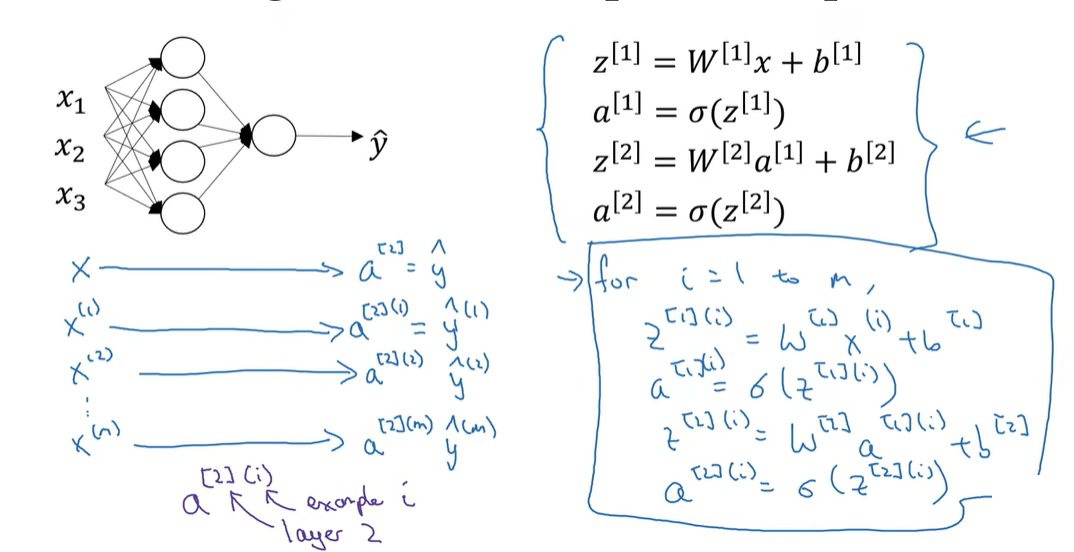 x₁
x₂
x₃
ŷ
z^[1] = W^[1]x + b^[1]
a^[1] = σ(z^[1])
z^[2] = W^[2]a^[1] + b^[2]
a^[2] = σ(z^[2])
←
x → a^[2] = ŷ
x^(1) → a^[2](1) = ŷ^(1)
x^(2) → a^[2](2) ŷ^(2)
⋮
x^(m) → a^[2](m) ŷ^(m)
a^[2](i)
example i
layer 2
→ for i = 1 to m,
z^[1](i) = W^[1] x^(i) + b^[1]
a^[1](i) = σ(z^[1](i))
z^[2](i) = W^[2] a^[1](i) + b^[2]
a^[2](i) = σ(z^[2](i))